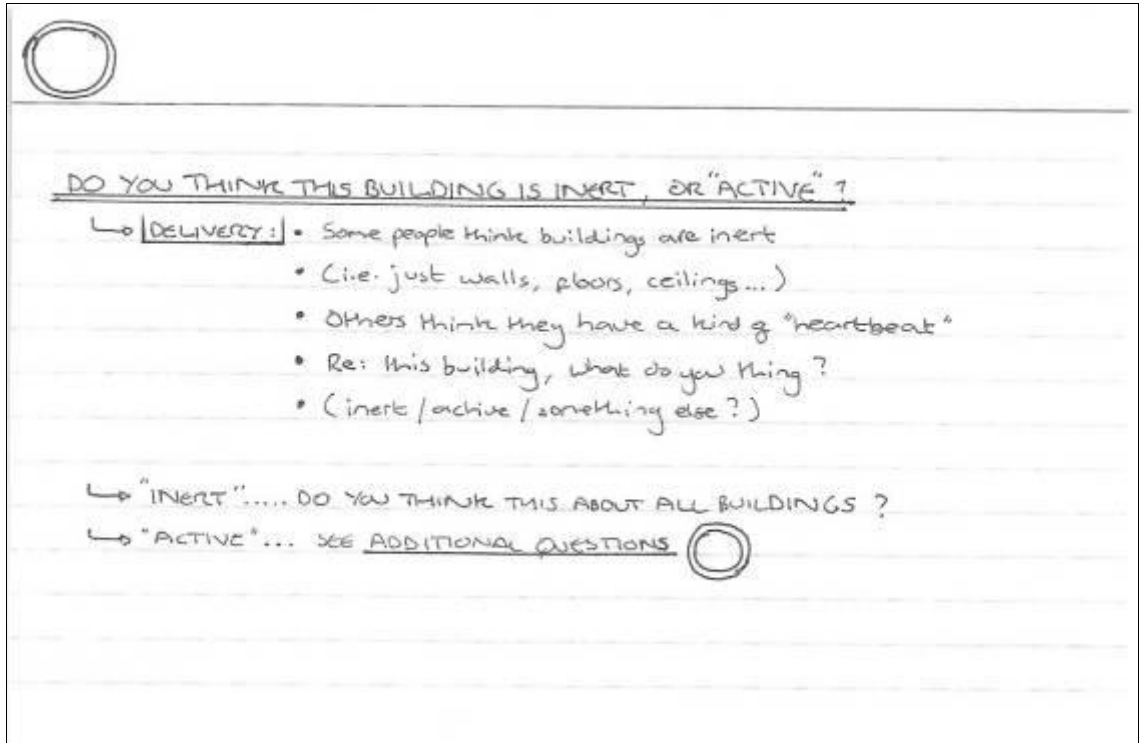 DO YOU THINK THIS BUILDING IS INERT, OR "ACTIVE" ?
↳ DELIVERY: • Some people think buildings are inert
• (i.e. just walls, floors, ceilings...)
• Others think they have a kind of "heartbeat"
• Re: this building, what do you thing ?
• (inert / active / something else ?)
↳ "INERT"..... DO YOU THINK THIS ABOUT ALL BUILDINGS ?
↳ "ACTIVE"... SEE ADDITIONAL QUESTIONS